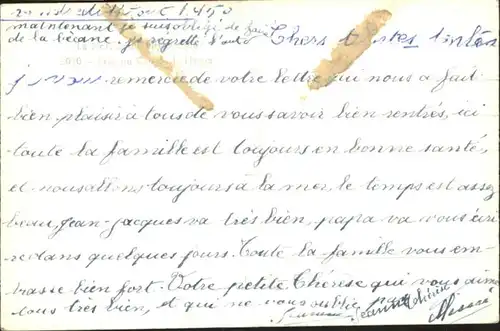 1950
maintenant je suis obligé de faire
de la bécane. je regrette l'auto
Chers
remercie de votre lettre qui nous a fait
bien plaisir à tous de vous savoir bien rentrés, ici
toute la famille est toujours en bonne santé,
et nous allons toujours à la mer, le temps est assez
beau, Jean-Jacques va très bien, papa va vous écri
re dans quelques jours. Toute la famille vous em-
brasse bien fort. Votre petite Thérèse qui vous aime
tous très bien, et qui ne vous oublie pas
Jeannine Thérèse